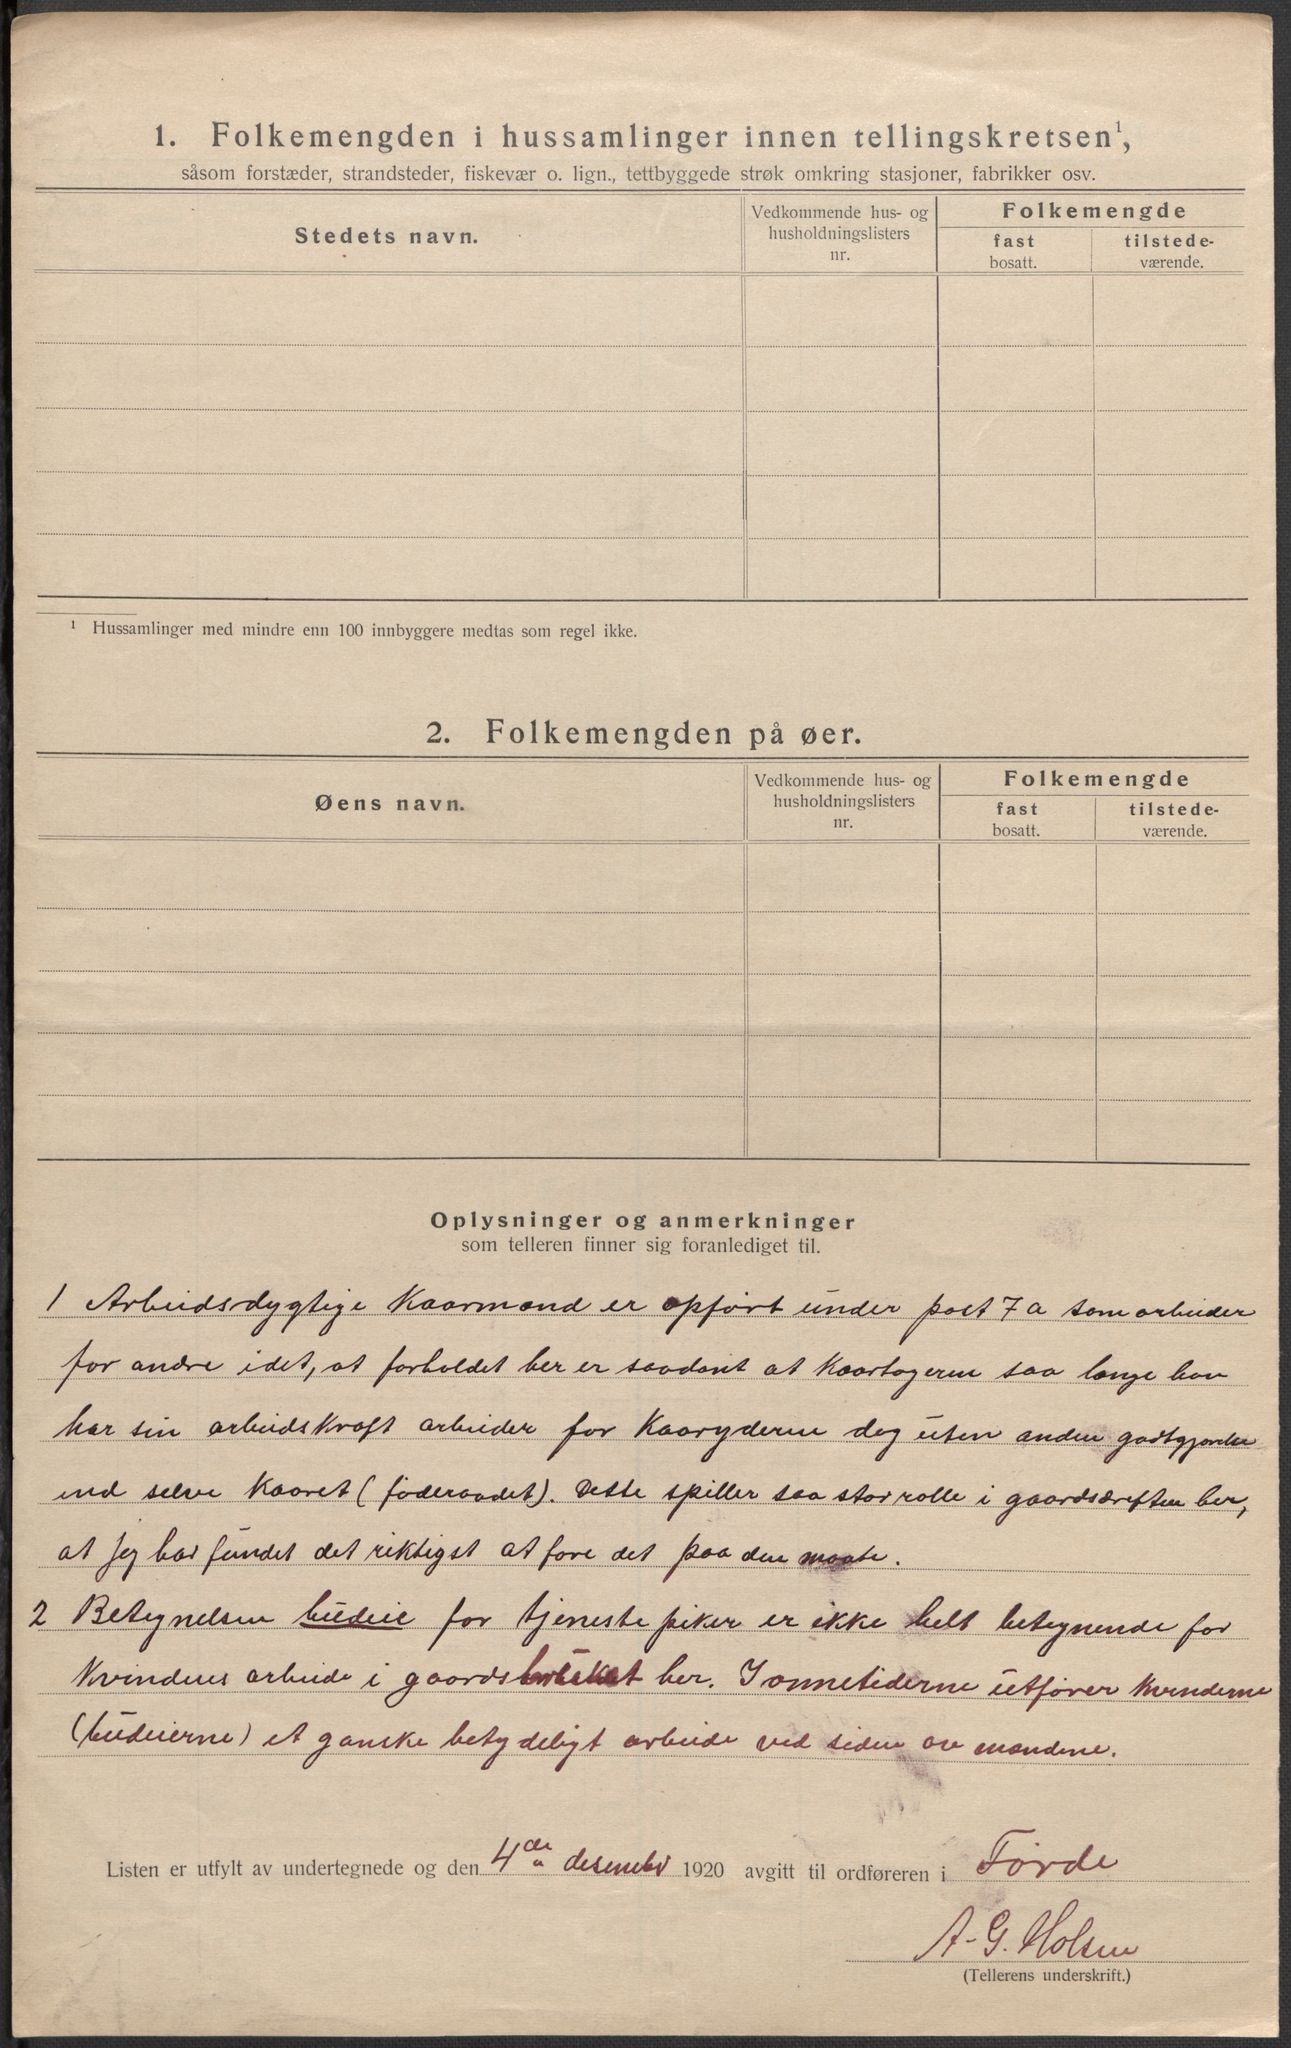 1. Folkemengden i hussamlinger innen tellingskretsen¹,
såsom forstæder, strandsteder, fiskevær o. lign., tettbyggede strøk omkring stasjoner, fabrikker osv.
Stedets navn.
Vedkommende hus- og
husholdningslisters
nr.
Folkemengde
fast
bosatt.
tilstede-
værende.
¹ Hussamlinger med mindre enn 100 innbyggere medtas som regel ikke.
2. Folkemengden på øer.
Øens navn.
Vedkommende hus- og
husholdningslisters
nr.
Folkemengde
fast
bosatt.
tilstede-
værende.
Oplysninger og anmerkninger
som telleren finner sig foranlediget til.
1 Arbeidsdygtige Kaarmænd er opført under post 7 a som arbeider
for andre idet, at forholdet her er saadant at Kaartagerne saa længe han
har sin arbeidskraft arbeider for Kaaryderne dog uten anden godtgjørelse
end selve Kaaret (føderaadet). Dette spiller saa stor rolle i gaardsdriften her,
at jeg har fundet det riktigst at føre det paa den maate.
2 Betegnelsen budeie for tjenestepiker er ikke helt betegnende for
Kvindenes arbeide i gaardsbruket her. I onnetiderne utfører Kvinderne
(budeierne) et ganske betydeligt arbeide ved siden av mændene.
Listen er utfylt av undertegnede og den 4de desember 1920 avgitt til ordføreren i Førde
A. G. Holsen
(Tellerens underskrift.)